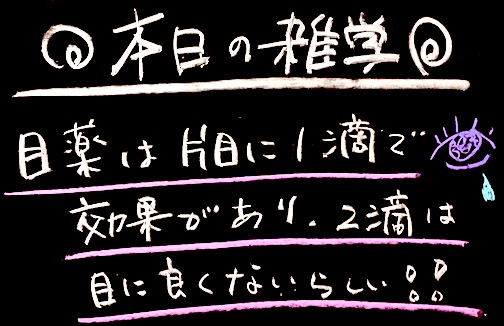 本日の雑学
目薬は片目に1滴で
効果があり、2滴は
目に良くないらしい!!